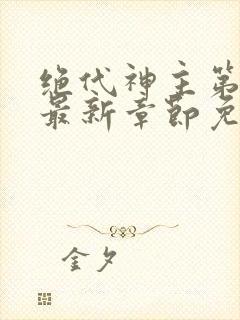 绝代神主第
最新章节免
金夕